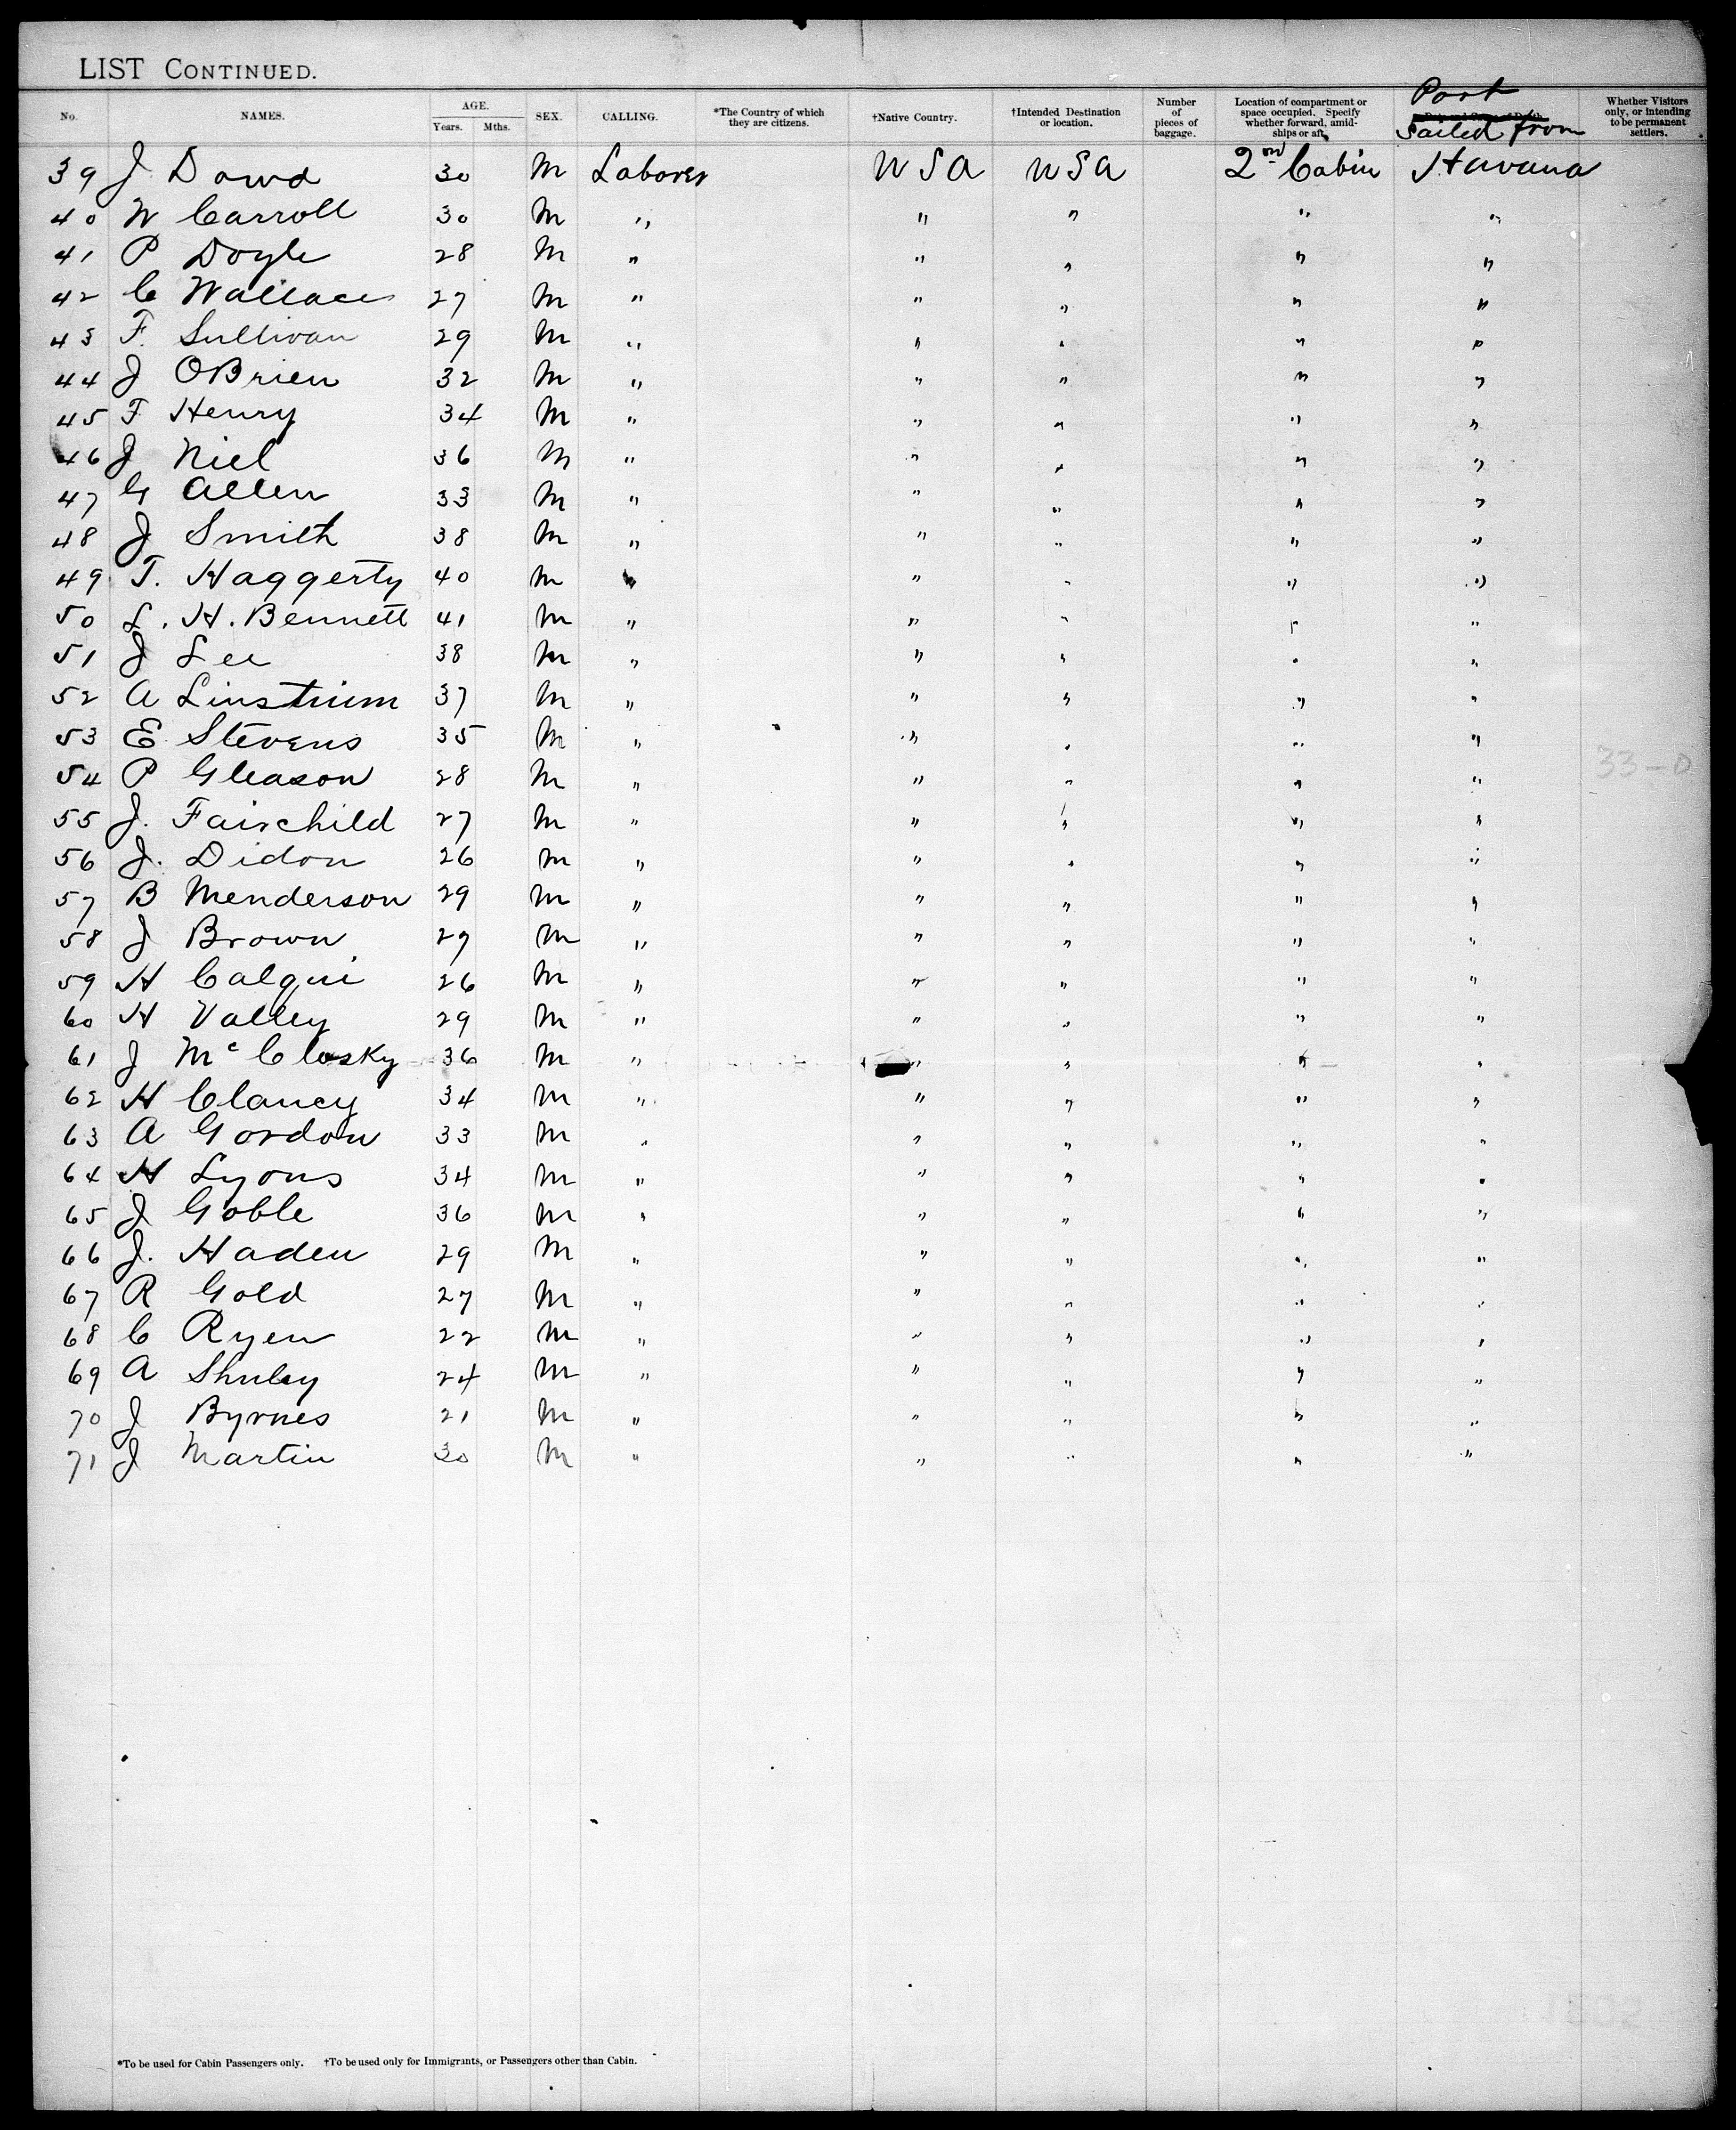 LIST CONTINUED.
No. NAMES. AGE. Years. Mths. SEX. CALLING. *The Country of which they are citizens. †Native Country. †Intended Destination or location. Number of pieces of baggage. Location of compartment or space occupied. Specify whether forward, amidships or aft. Port Sailed from Whether Visitors only, or intending to be permanent settlers.
39 J Dowd 30 M Laborer U S A U S A 2nd Cabin Havana
40 W Carroll 30 M " " " " "
41 P Doyle 28 M " " " " "
42 C Wallace 27 M " " " " "
43 F. Sullivan 29 M " " " " "
44 J OBrien 32 M " " " " "
45 F Henry 34 M " " " " "
46 J Niel 36 M " " " " "
47 G Allen 33 M " " " " "
48 J Smith 38 M " " " " "
49 T. Haggerty 40 M " " " " "
50 L. H. Bennett 41 M " " " " "
51 J Lee 38 M " " " " "
52 A Linstrum 37 M " " " " "
53 E Stevens 35 M " " " " "
54 P Gleason 28 M " " " " "
33-0
55 J. Fairchild 27 M " " " " "
56 J. Didon 26 M " " " " "
57 B Menderson 29 M " " " " "
58 J Brown 27 M " " " " "
59 H Calqui 26 M " " " " "
60 H Valley 29 M " " " " "
61 J McClosky 36 M " " " " "
62 H Clancy 34 M " " " " "
63 A Gordon 33 M " " " " "
64 H Lyons 34 M " " " " "
65 J Goble 36 M " " " " "
66 J. Haden 29 M " " " " "
67 R Gold 27 M " " " " "
68 C Ryen 22 M " " " " "
69 A Shuley 24 M " " " " "
70 J Byrnes 21 M " " " " "
71 J Martin 30 M " " " " "
*To be used for Cabin Passengers only. †To be used only for Immigrants, or Passengers other than Cabin.